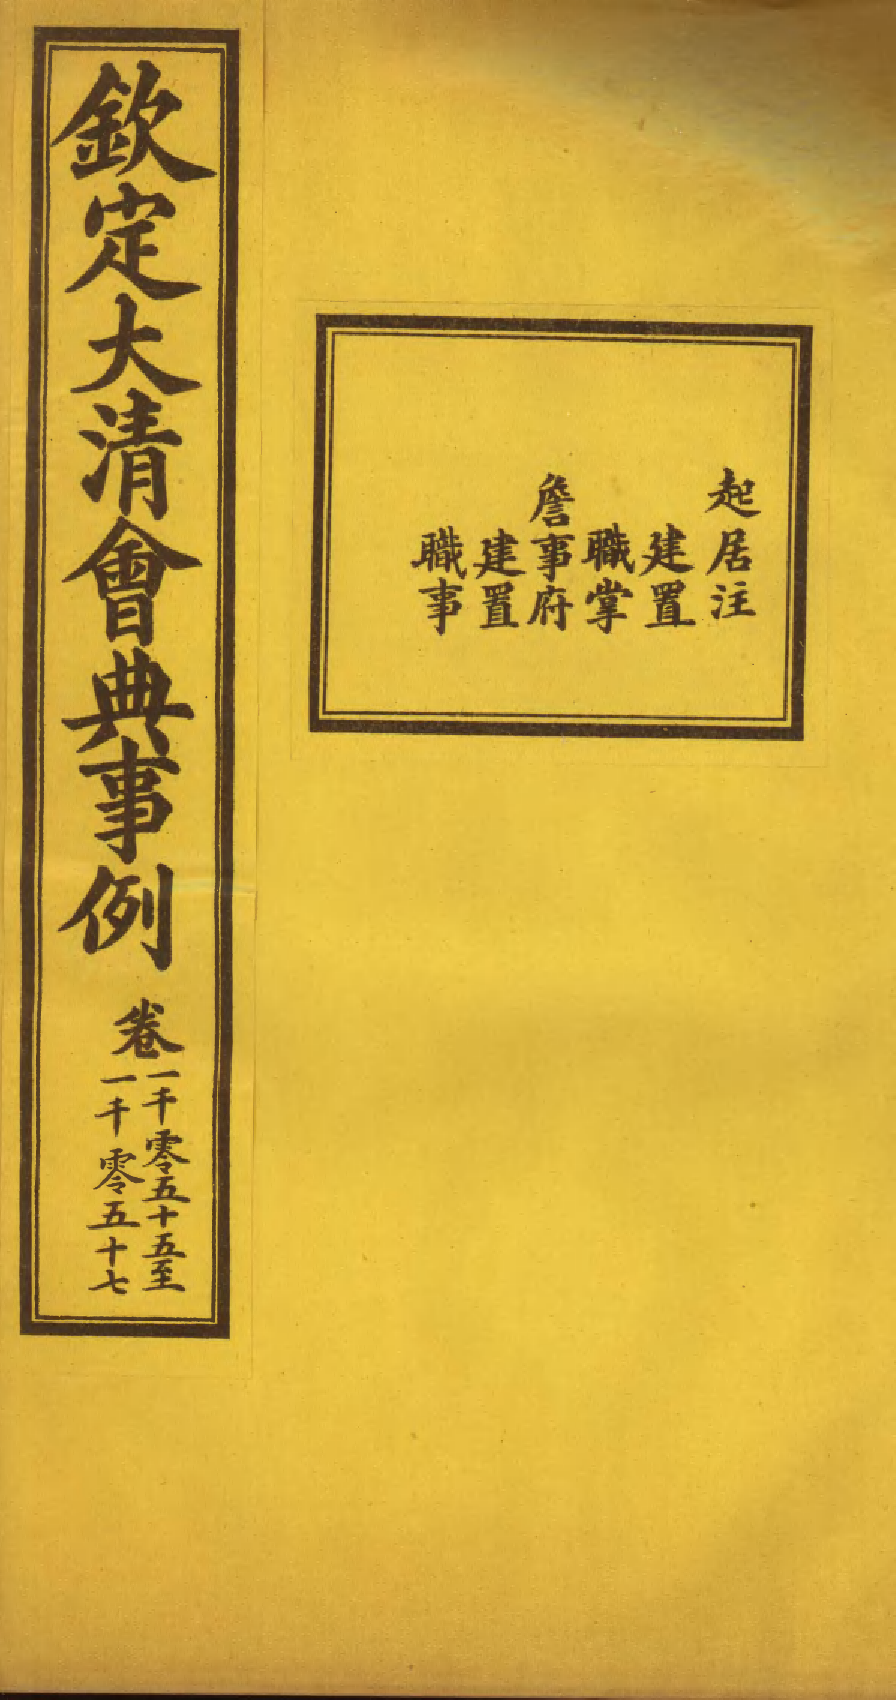 起居注
建置
職掌
詹事府
建置
職事
欽定大清會典事例
卷
一千零五十五至
一千零五十七